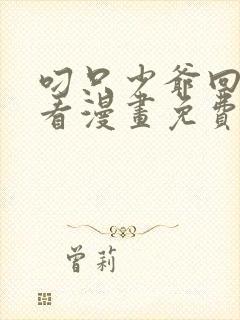 叼只少爺回
看漫畫免費
曾莉